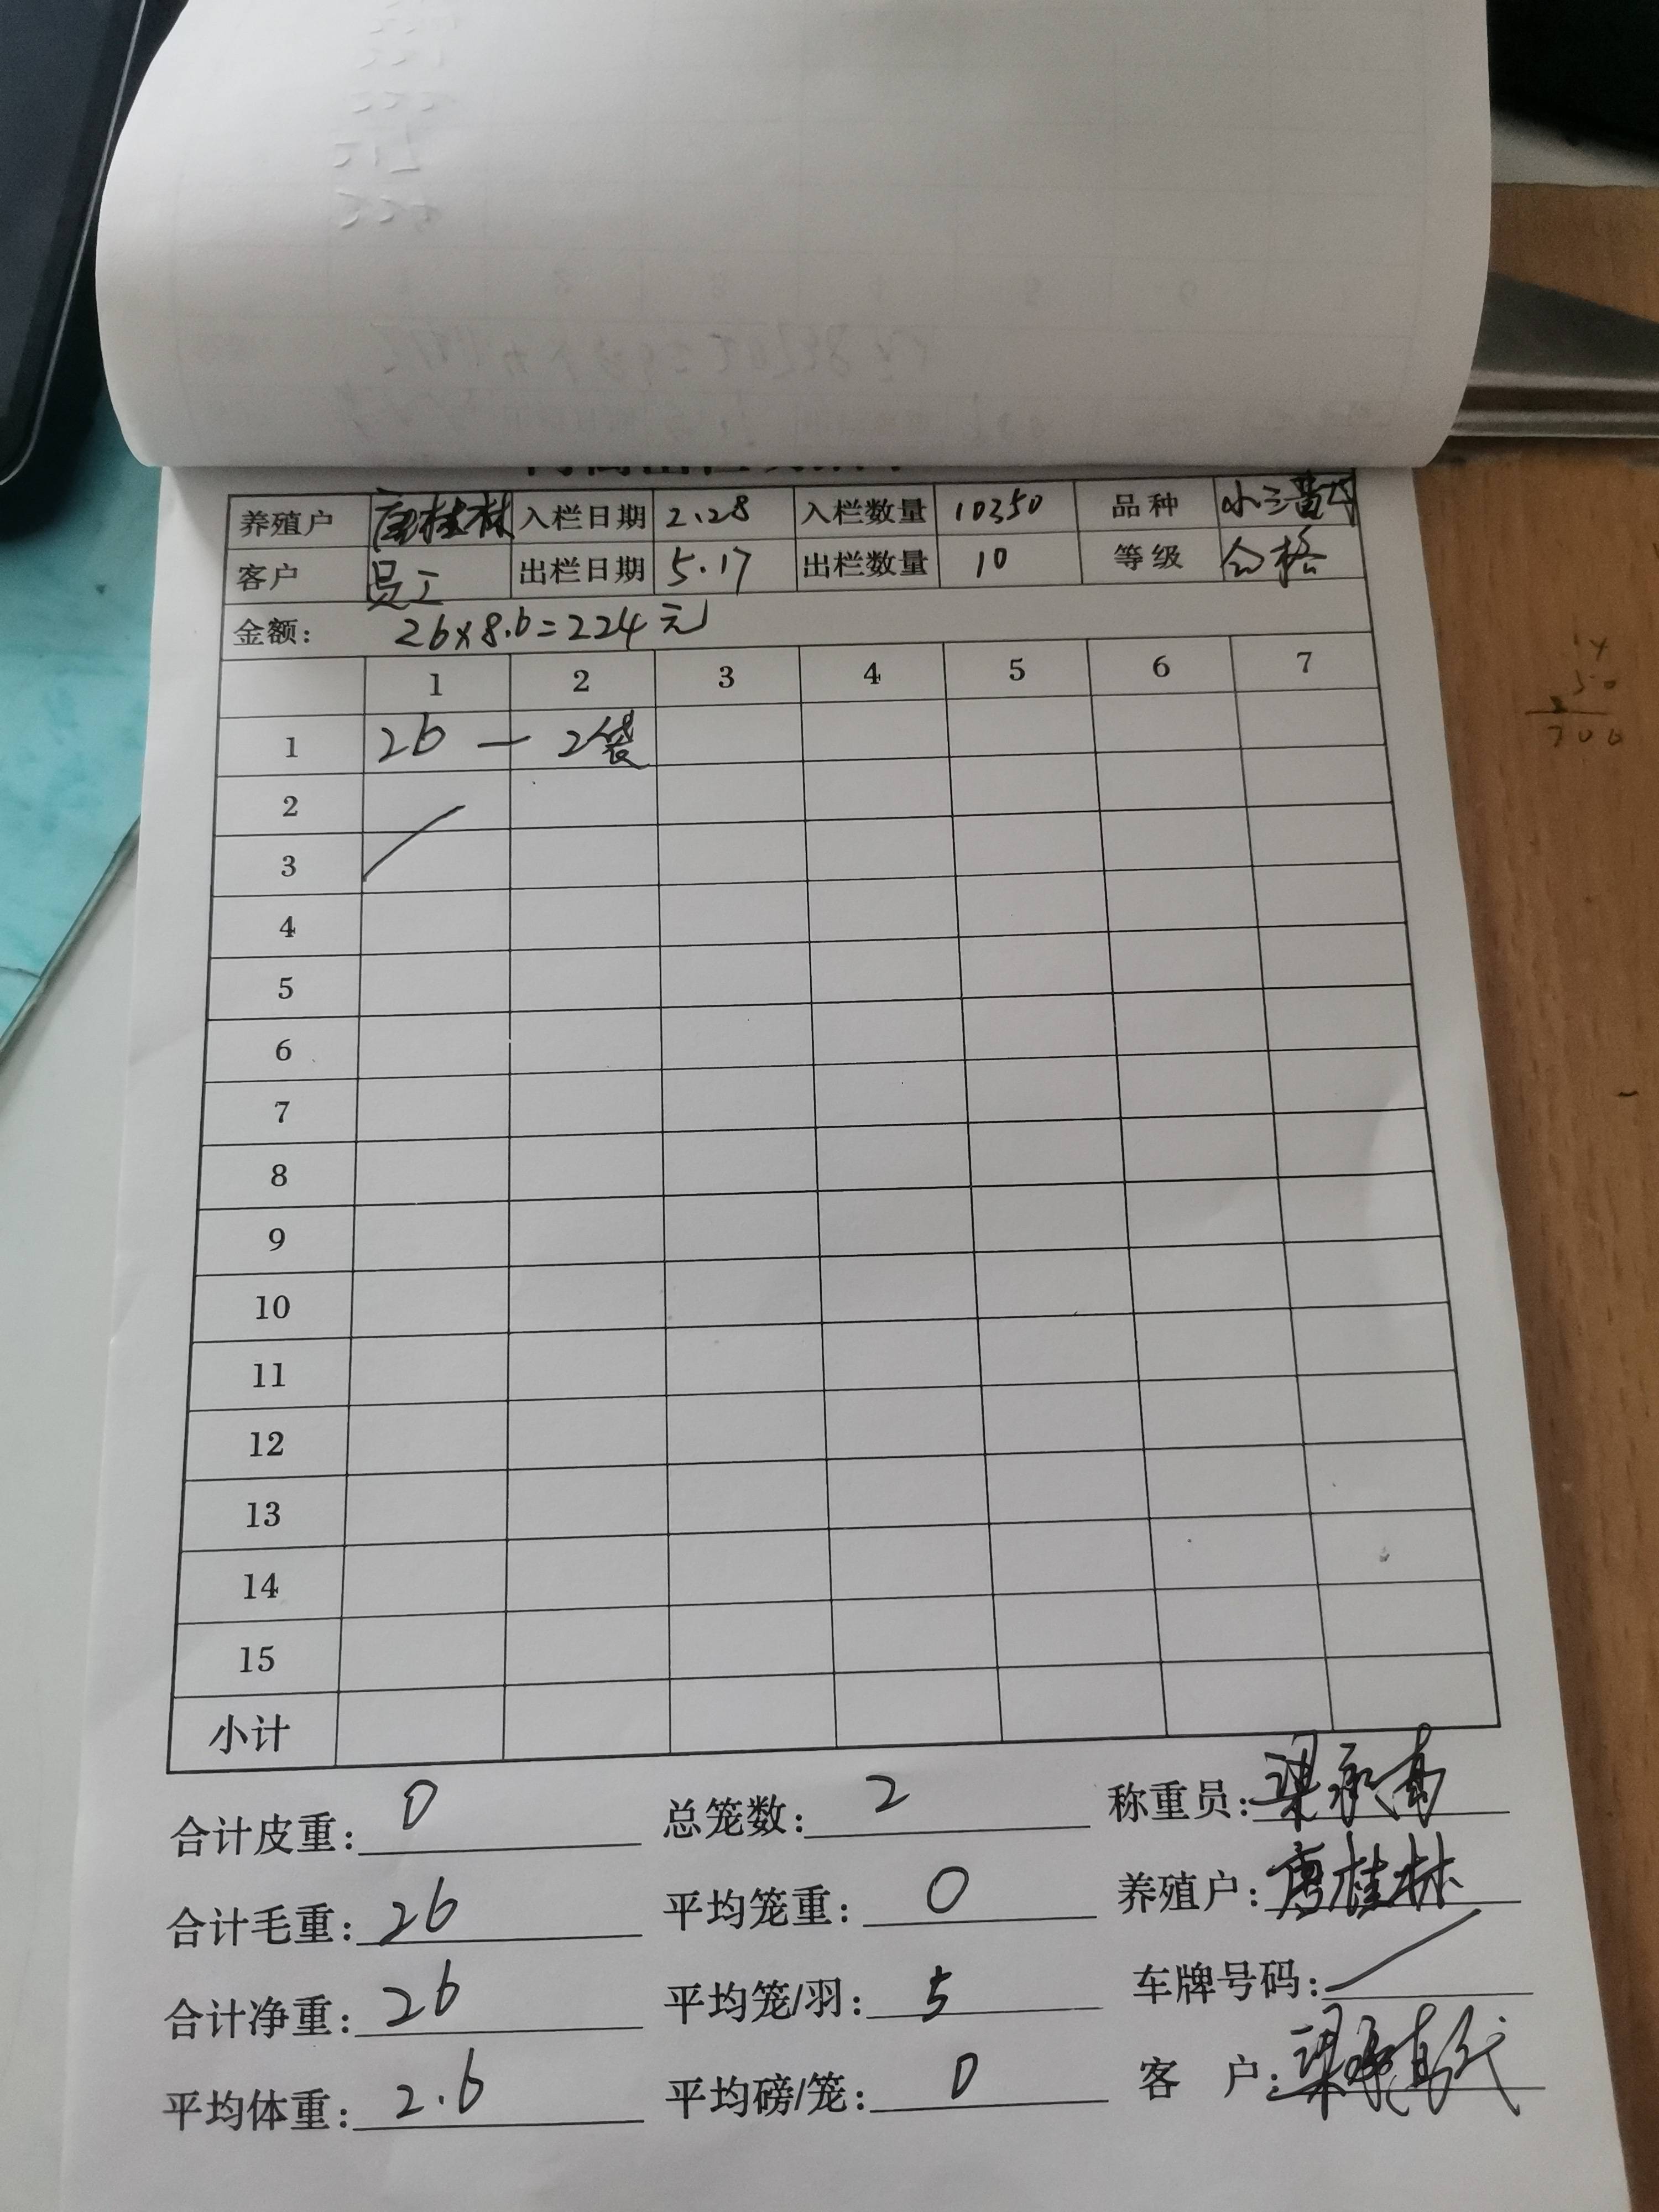 养殖户 唐桂林 入栏日期 2.28 入栏数量 10350 品种
客户 员工 出栏日期 5.17 出栏数量 10 等级 合格
金额: 26x8.6=224元
1 2 3 4 5 6 7
1 26 — 2袋
2
3
4
5
6
7
8
9
10
11
12
13
14
15
小计
合计皮重: 0 总笼数: 2 称重员:
合计毛重: 26 平均笼重: 0 养殖户: 唐桂林
合计净重: 26 平均笼/羽: 5 车牌号码:
平均体重: 2.6 平均磅/笼: 0 客 户: